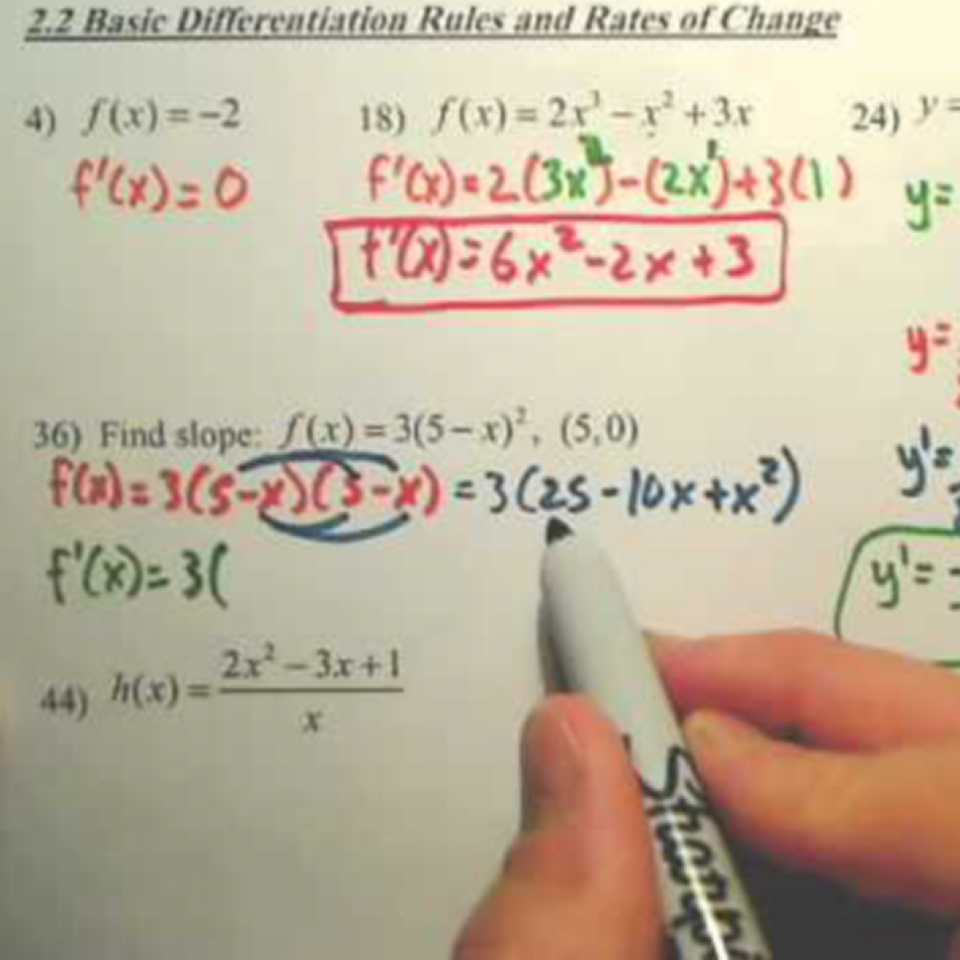 2.2 Basic Differentiation Rules and Rates of Change
4) f(x) = -2
f'(x) = 0
18) f(x) = 2x³ - x² + 3x
f'(x) = 2(3x²) - (2x¹) + 3(1)
f'(x) = 6x² - 2x + 3
24) y =
y =
y =
y' =
y' =
36) Find slope: f(x) = 3(5 - x)², (5,0)
f(x) = 3(5-x)(5-x) = 3(25 - 10x + x²)
f'(x) = 3(
44) h(x) = (2x² - 3x + 1)/x
Sharpie